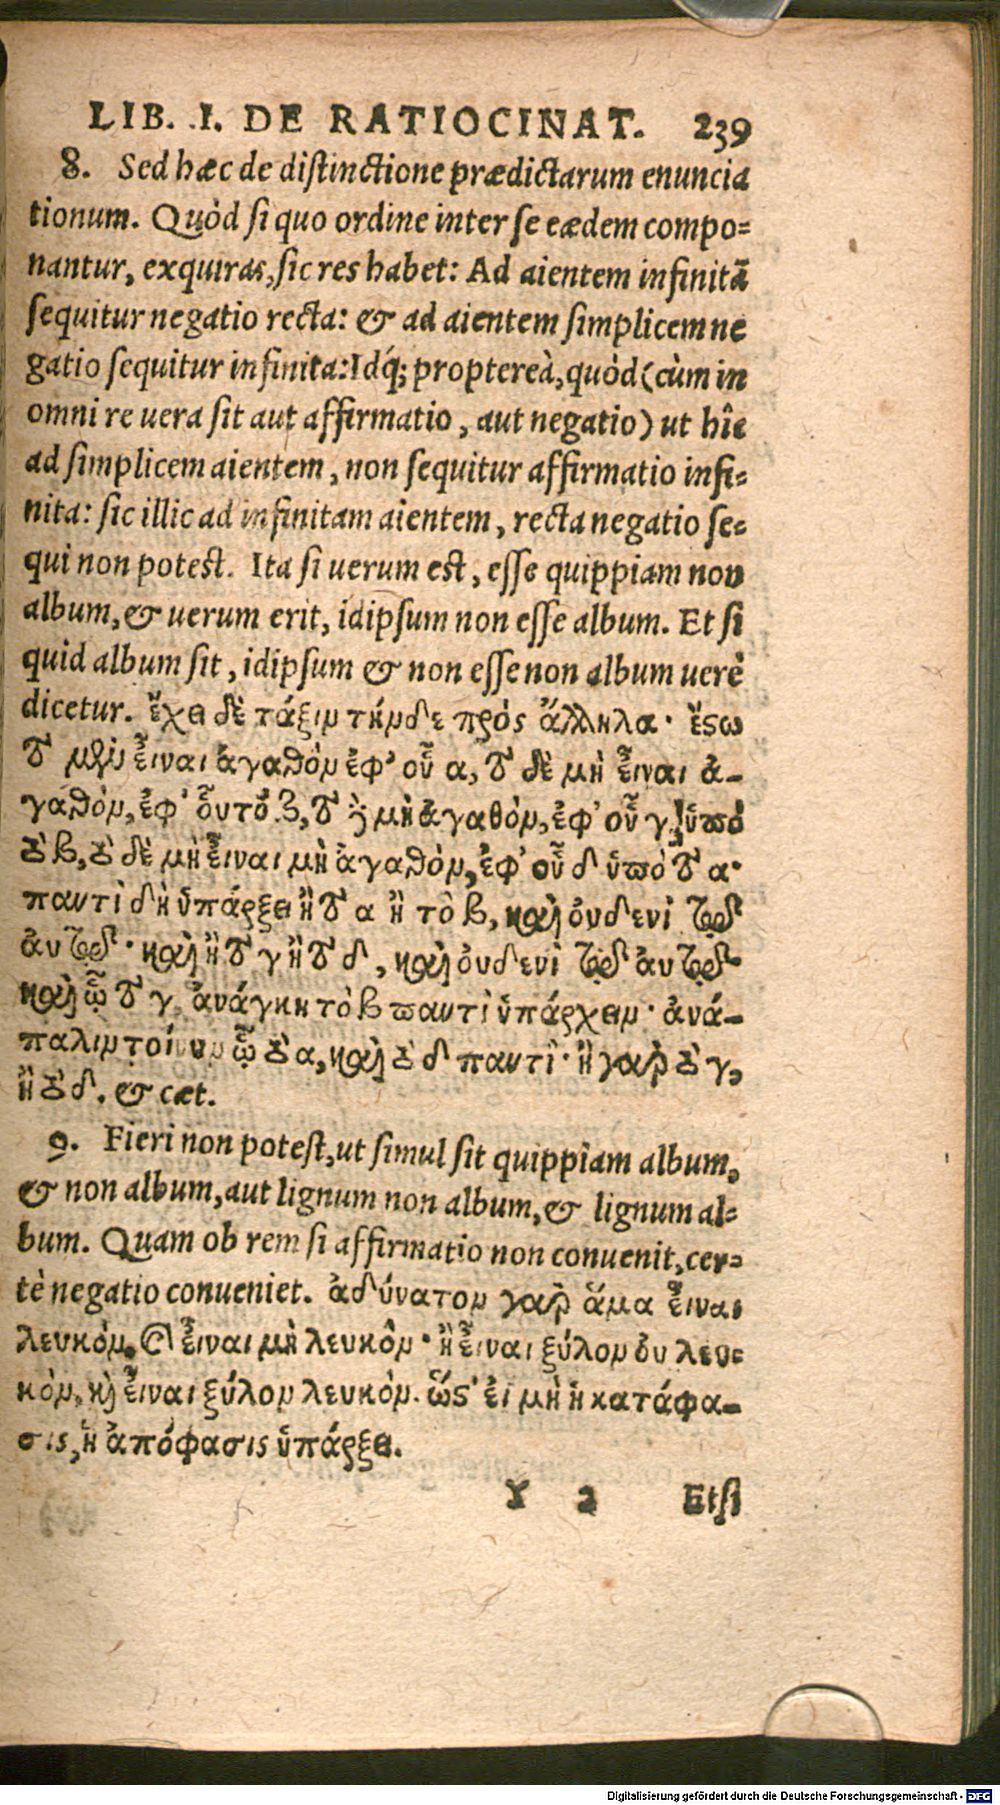 LIB. I. DE RATIOCINAT. 239
8. Sed hæc de distinctione prædictarum enuncia
tionum. Quòd si quo ordine inter se eædem compo=
nantur, exquiras, sic res habet: Ad aientem infinitã
sequitur negatio recta: & ad aientem simplicem ne
gatio sequitur infinita: Idq́; propterea, quòd (cùm in
omni re uera sit aut affirmatio, aut negatio) ut hîc
ad simplicem aientem, non sequitur affirmatio infi=
nita: sic illic ad infinitam aientem, recta negatio se=
qui non potest. Ita si uerum est, esse quippiam non
album, & uerum erit, idipsum non esse album. Et si
quid album sit, idipsum & non esse non album uerè
dicetur. ἔχει δὲ τάξιν τήνδε πρός ἄλληλα· ἔστω
τὸ μὲν εἶναι ἀγαθὸν ἐφ' οὗ α, τὸ δὲ μὴ εἶναι ἀ-
γαθὸν, ἐφ' οὗ τὸ β, τὸ δὲ μὴ ἀγαθὸν, ἐφ' οὗ γ, ὑπὸ
τὸ β, τὸ δὲ μὴ εἶναι μὴ ἀγαθὸν, ἐφ' οὗ δ ὑπὸ τὸ α·
παντὶ δὴ ὑπάρξει ἢ τὸ α ἢ τὸ β, καὶ οὐδενὶ τῷ
αὐτῷ· καὶ ἢ τὸ γ ἢ τὸ δ, καὶ οὐδενὶ τῷ αὐτῷ·
καὶ ᾧ τὸ γ, ἀνάγκη τὸ β παντὶ ὑπάρχειν· ἀνά-
παλιν τοίνυν ᾧ τὸ α, καὶ τὸ δ παντὶ· ἢ γὰρ τὸ γ,
ἢ τὸ δ. & cæt.
9. Fieri non potest, ut simul sit quippiam album,
& non album, aut lignum non album, & lignum al=
bum. Quam ob rem si affirmatio non conuenit, cer=
tè negatio conueniet. ἀδύνατον γὰρ ἅμα εἶναι
λευκὸν, καὶ εἶναι μὴ λευκὸν· ἢ εἶναι ξύλον οὐ λευ=
κὸν, καὶ εἶναι ξύλον λευκὸν. ὥστ' εἰ μὴ ἡ κατάφα-
σις, ἡ ἀπόφασις ὑπάρξει.
Y 2 Et si
Digitalisierung gefördert durch die Deutsche Forschungsgemeinschaft - DFG